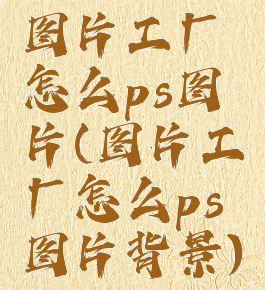 图片工厂
怎么ps图
片(图片工
厂怎么ps
图片背景)